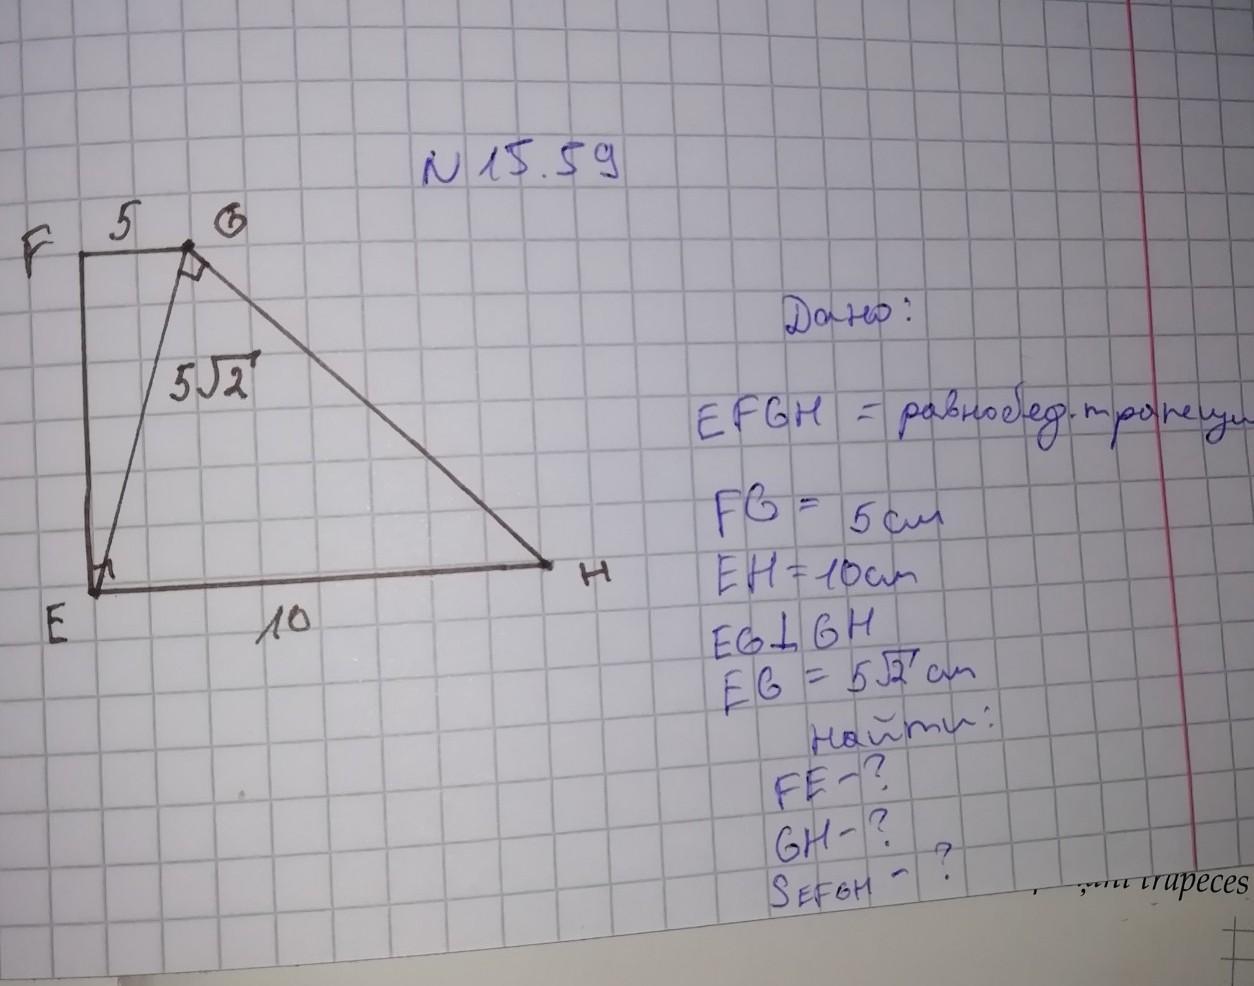 N 15.59
F 5 G
5√2
E 10 H
Дано:
EFGH = равнобед. трапеци
FG = 5 см
EH = 10 см
EG ⊥ GH
EG = 5√2 см
Найти:
FE - ?
GH - ?
S EFGH - ?
trapeces